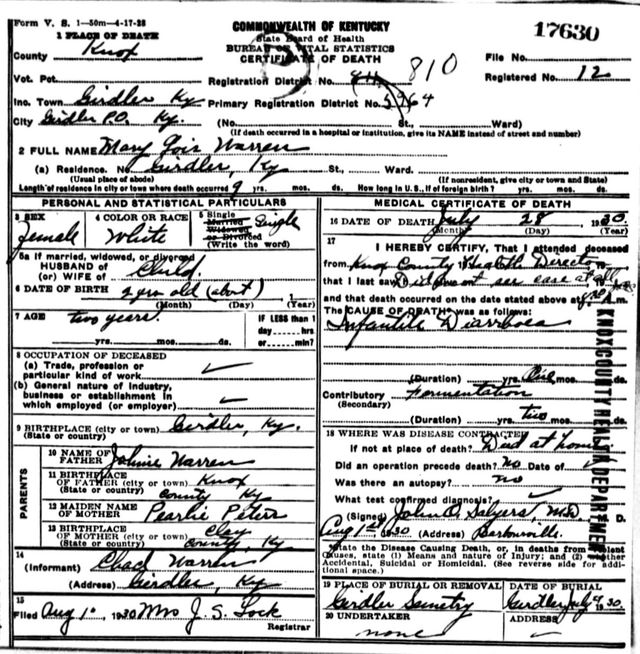 Form V. S. 1—50m—4-17-28
COMMONWEALTH OF KENTUCKY
State Board of Health
BUREAU OF VITAL STATISTICS
CERTIFICATE OF DEATH
17630
1 PLACE OF DEATH
County Knox
File No.
Vot. Pct.
Registration District No. 810
Registered No. 12
Ino. Town Girdler Ky
Primary Registration District No. 5964
City Girdler P.O. Ky.
(No. St., Ward)
(If death occurred in a hospital or institution, give its NAME instead of street and number)
2 FULL NAME Mary Warren
(a) Residence. No. Girdler, Ky St., Ward.
(Usual place of abode) (If nonresident, give city or town and State)
Length of residence in city or town where death occurred yrs. mos. ds. How long in U. S., if of foreign birth? yrs. mos. ds.
PERSONAL AND STATISTICAL PARTICULARS
3 SEX
Female
4 COLOR OR RACE
White
5 Single
Married
Widowed
or Divorced
(Write the word)
Single
5a If married, widowed, or divorced
HUSBAND OF
(or) WIFE of Child.
6 DATE OF BIRTH 2 yrs old (about) 1
(Month) (Day) (Year)
7 AGE two years.
yrs. mos. ds.
IF LESS than 1
day hrs.
or min?
8 OCCUPATION OF DECEASED
(a) Trade, profession or
particular kind of work ✓
(b) General nature of Industry,
business or establishment in
which employed (or employer) ✓
9 BIRTHPLACE (city or town) Girdler, Ky.
(State or country)
PARENTS
10 NAME OF
FATHER Johnie Warren
11 BIRTHPLACE
OF FATHER (city or town) Knox
(State or country) County Ky
12 MAIDEN NAME
OF MOTHER Pearlie Peters
13 BIRTHPLACE
OF MOTHER (city or town) Clay
(State or country) County, Ky
14
(Informant) Chad Warren
(Address) Girdler, Ky
15
Filed Aug 1, 1930 Mrs J. S. Lock
Registrar
MEDICAL CERTIFICATE OF DEATH
16 DATE OF DEATH July 28 1930
(Month) (Day) (Year)
17
I HEREBY CERTIFY, That I attended deceased
from Knox County Health Director
that I last saw Did not see case at all
and that death occurred on the date stated above at m.
The CAUSE OF DEATH* was as follows:
Infantile Diarrhoea
(Duration) yrs. One mos. ds.
Contributory Fermentation
(Secondary)
(Duration) yrs. two mos. ds.
18 WHERE WAS DISEASE CONTRACTED
If not at place of death? Died at home
Did an operation precede death? No Date of ✓
Was there an autopsy? no
What test confirmed diagnosis? ✓
(Signed) John O. Salyers, M.D.
Aug 1st 1930 (Address) Barbourville.
*State the Disease Causing Death, or, in deaths from Violent
Causes, state (1) Means and nature of Injury; and (2) whether
Accidental, Suicidal or Homicidal. (See reverse side for addi-
tional space.)
19 PLACE OF BURIAL OR REMOVAL
Girdler Semetry
DATE OF BURIAL
Girdler July 1930
20 UNDERTAKER
none
ADDRESS
✓
KNOX COUNTY HEALTH DEPARTMENT